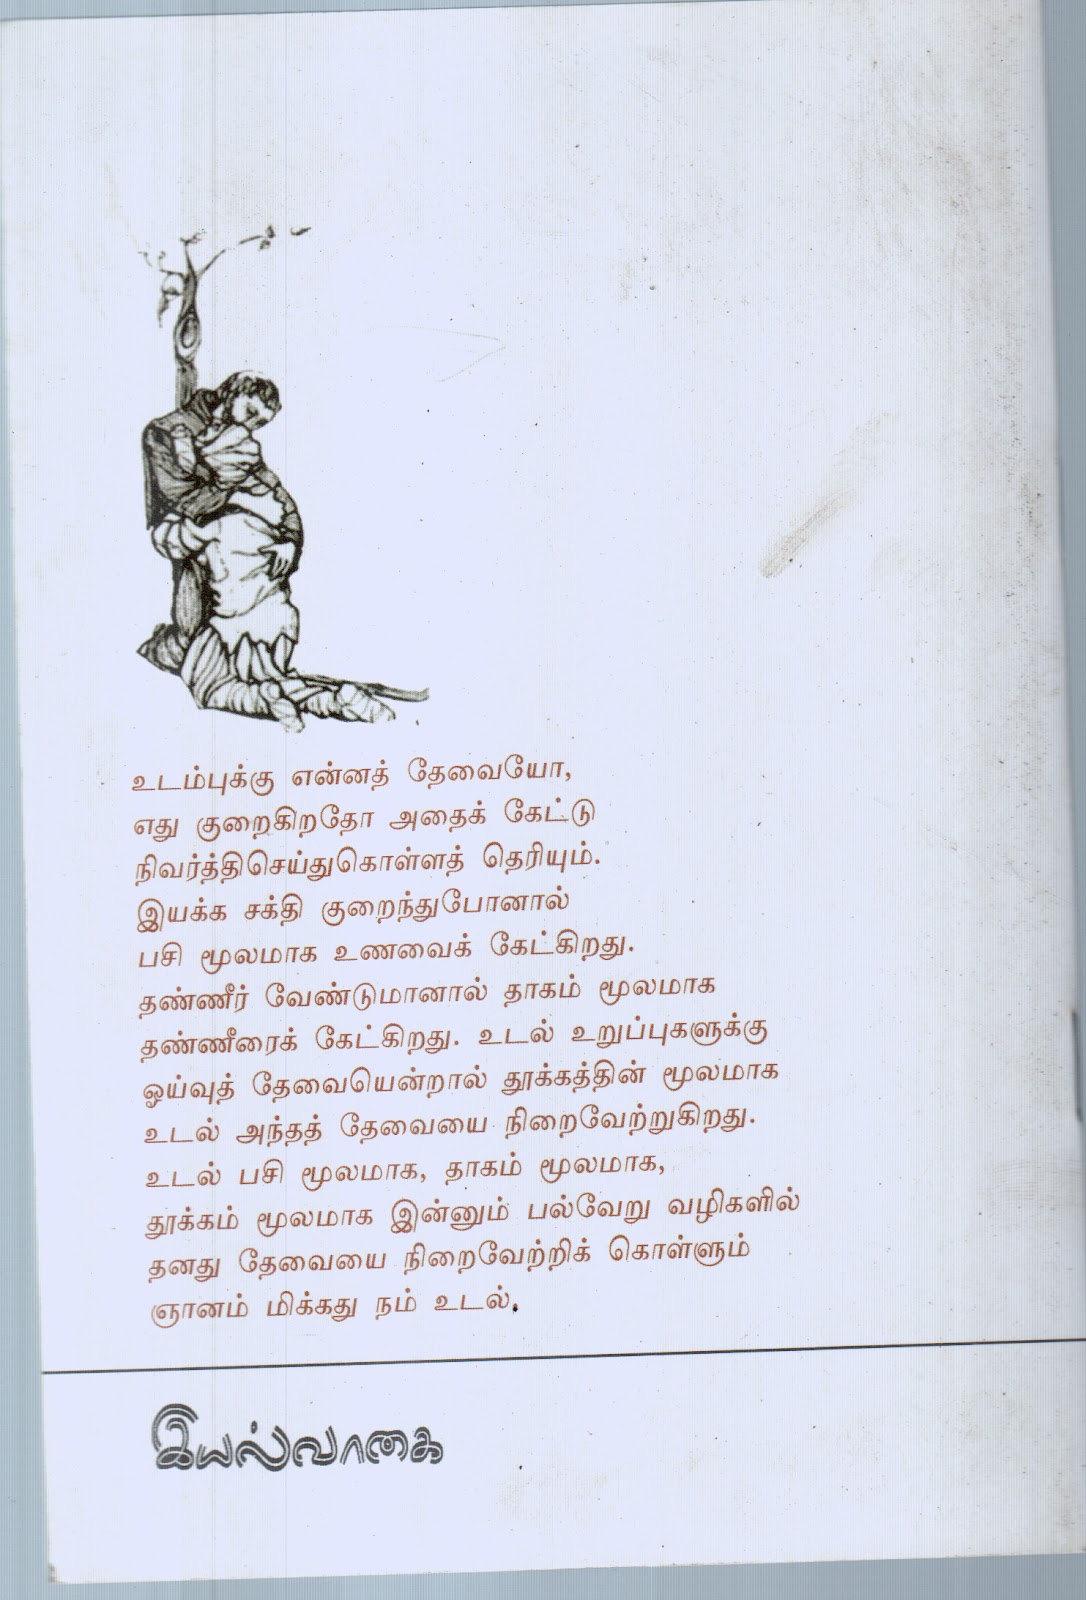 உடம்புக்கு என்னத் தேவையோ,
எது குறைகிறதோ அதைக் கேட்டு
நிவர்த்திசெய்துகொள்ளத் தெரியும்.
இயக்க சக்தி குறைந்துபோனால்
பசி மூலமாக உணவைக் கேட்கிறது.
தண்ணீர் வேண்டுமானால் தாகம் மூலமாக
தண்ணீரைக் கேட்கிறது. உடல் உறுப்புகளுக்கு
ஓய்வுத் தேவையென்றால் தூக்கத்தின் மூலமாக
உடல் அந்தத் தேவையை நிறைவேற்றுகிறது.
உடல் பசி மூலமாக, தாகம் மூலமாக,
தூக்கம் மூலமாக இன்னும் பல்வேறு வழிகளில்
தனது தேவையை நிறைவேற்றிக் கொள்ளும்
ஞானம் மிக்கது நம் உடல்.
இயல்வாகை